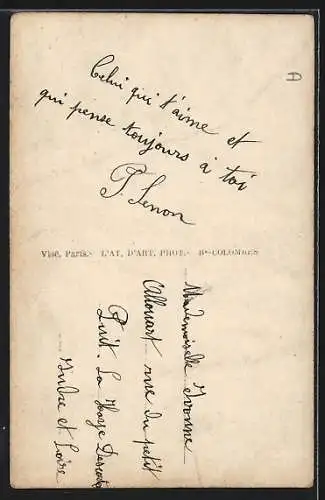 Celui qui t'aime et
qui pense toujours à toi
P. Lenon
Visé, Paris.- L'AT, D'ART, PHOT.- Bs-COLOMBES
Mademoiselle Yvonne
Allouart rue du petit
Puit. La Haye Descartes
Indre et Loire